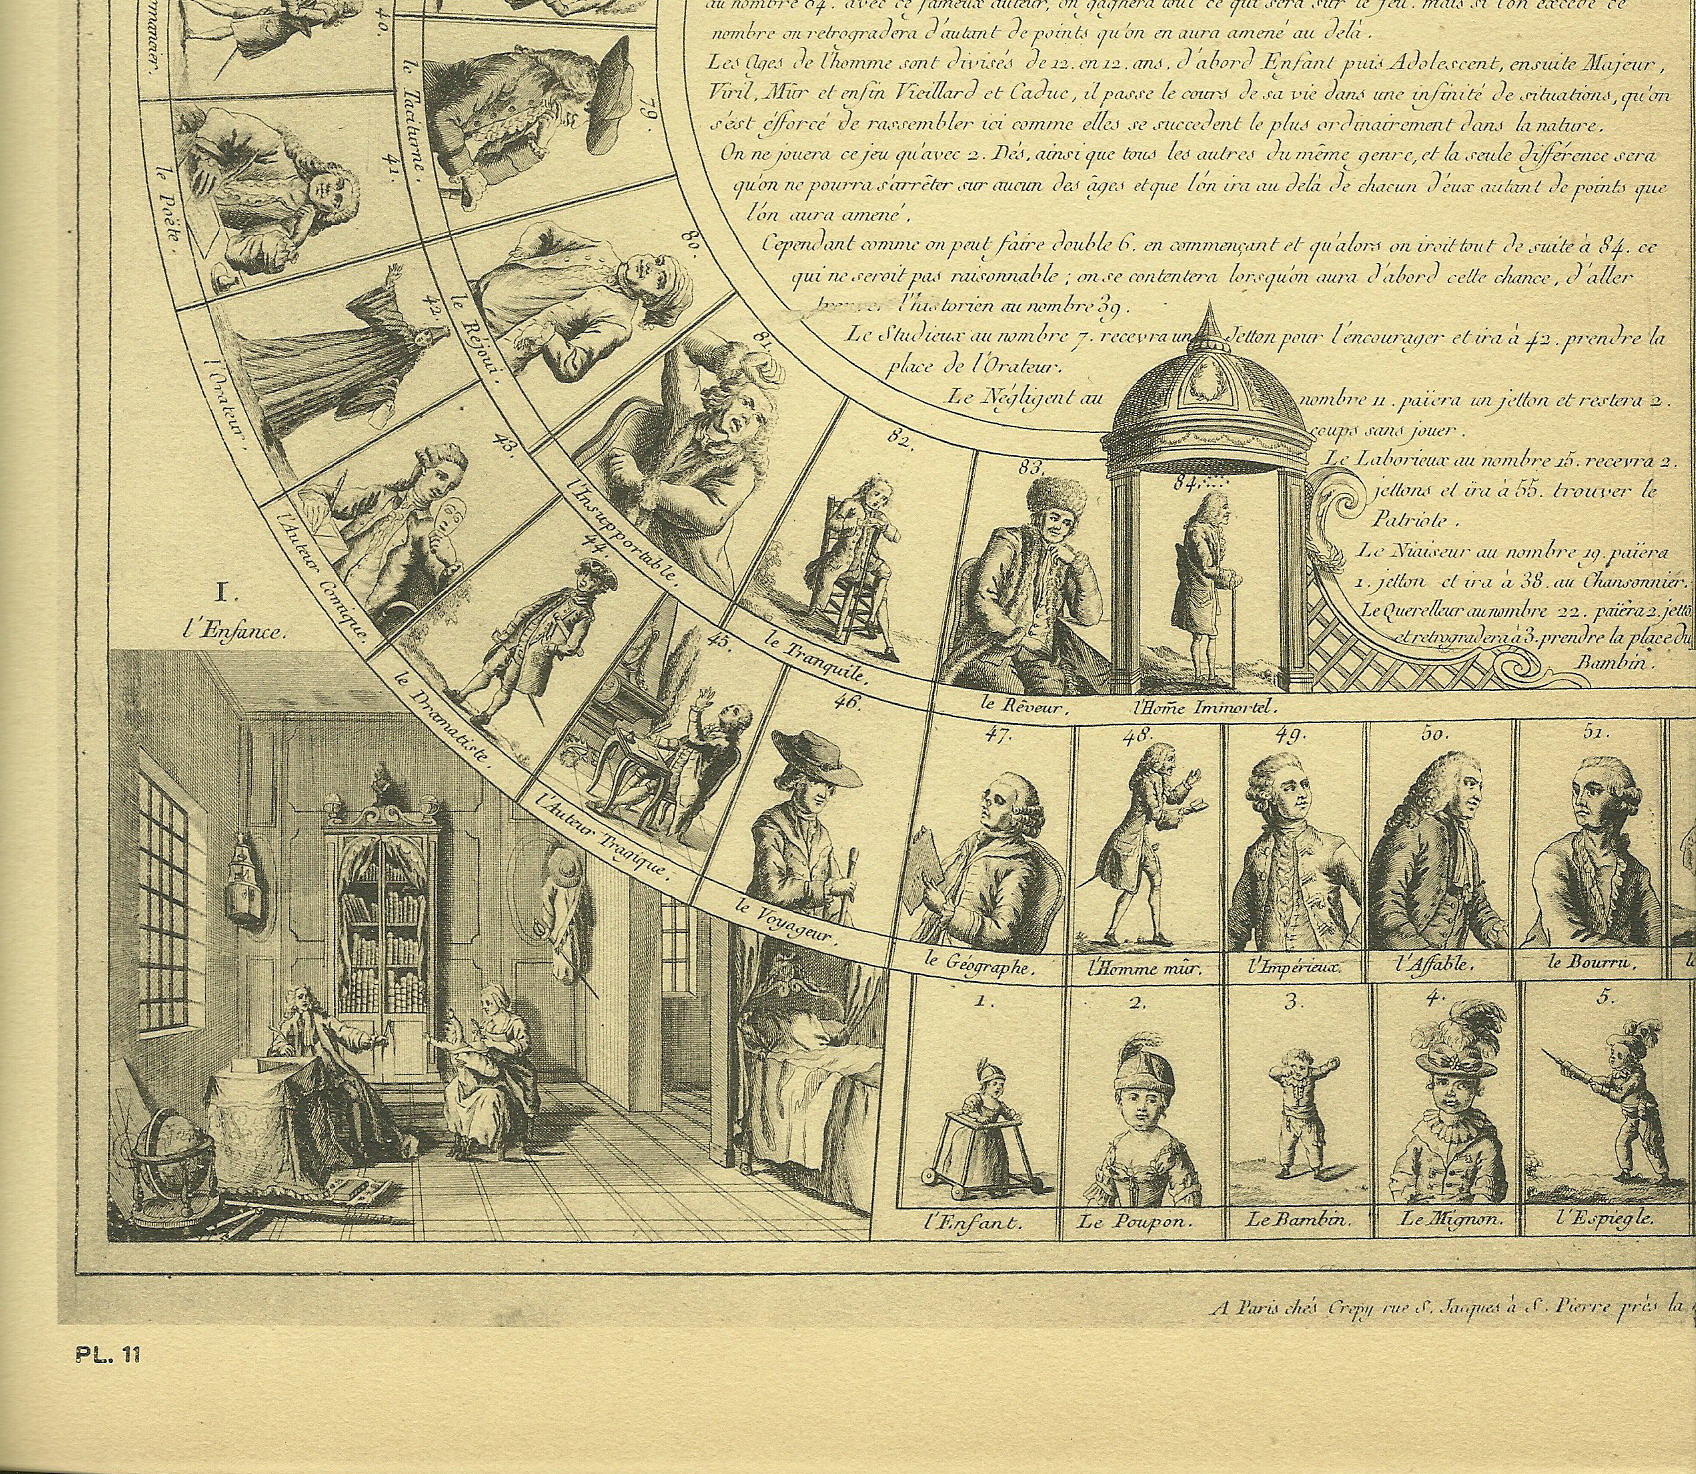 au nombre 84. avec ce fameux auteur, on gagnera tout ce qui sera sur le jeu. mais si l'on excede ce
nombre on retrogradera d'autant de points qu'on en aura amené au delà.
Les Ages de l'homme sont divisés de 12. en 12. ans, d'abord Enfant puis Adolescent, ensuite Majeur,
Viril, Mûr et enfin Vieillard et Caduc, il passe le cours de sa vie dans une infinité de situations, qu'on
s'est éfforcé de rassembler ici comme elles se succedent le plus ordinairement dans la nature.
On ne jouera ce jeu qu'avec 2. Dés, ainsi que tous les autres du même genre, et la seule différence sera
qu'on ne pourra s'arrêter sur aucun des âges et que l'ôn ira au delà de chacun d'eux autant de points que
l'ôn aura amené.
Cependant comme on peut faire double 6. en commençant et qu'alors on iroit tout de suite à 84. ce
qui ne seroit pas raisonnable ; on se contentera lorsqu'on aura d'abord cette chance, d'aller
trouver l'historien au nombre 39.
Le Studieux au nombre 7. recevra un Jetton pour l'encourager et ira à 42. prendre la
place de l'Orateur.
Le Négligent au nombre 11. païera un jetton et restera 2.
coups sans jouer.
Le Laborieux au nombre 15. recevra 2.
jettons et ira à 55. trouver le
Patriote.
Le Niaiseur au nombre 19. païera
1. jetton et ira à 38. au Chansonnier.
Le Querelleur au nombre 22. païera 2. jetto
et retrogradera à 3. prendre la place du
Bambin.
romancier.
40.
le Poëte.
41.
l'Orateur.
42.
l'Auteur Comique.
43.
le Dramatiste.
44.
l'Auteur Tragique.
45.
le Voyageur.
46.
le Taciturne.
79.
le Réjoui.
80.
l'Insupportable.
81.
le Tranquile.
82.
le Rêveur.
83.
l'Hom̃e Immortel.
84.
47. 48. 49. 50. 51.
le Géographe. l'Homme mûr. l'Impérieux. l'Affable. le Bourru.
1. 2. 3. 4. 5.
l'Enfant. Le Poupon. Le Bambin. Le Mignon. l'Espiegle.
I.
l'Enfance.
A Paris chés Crepy rue S. Jacques à S. Pierre près la
PL. 11